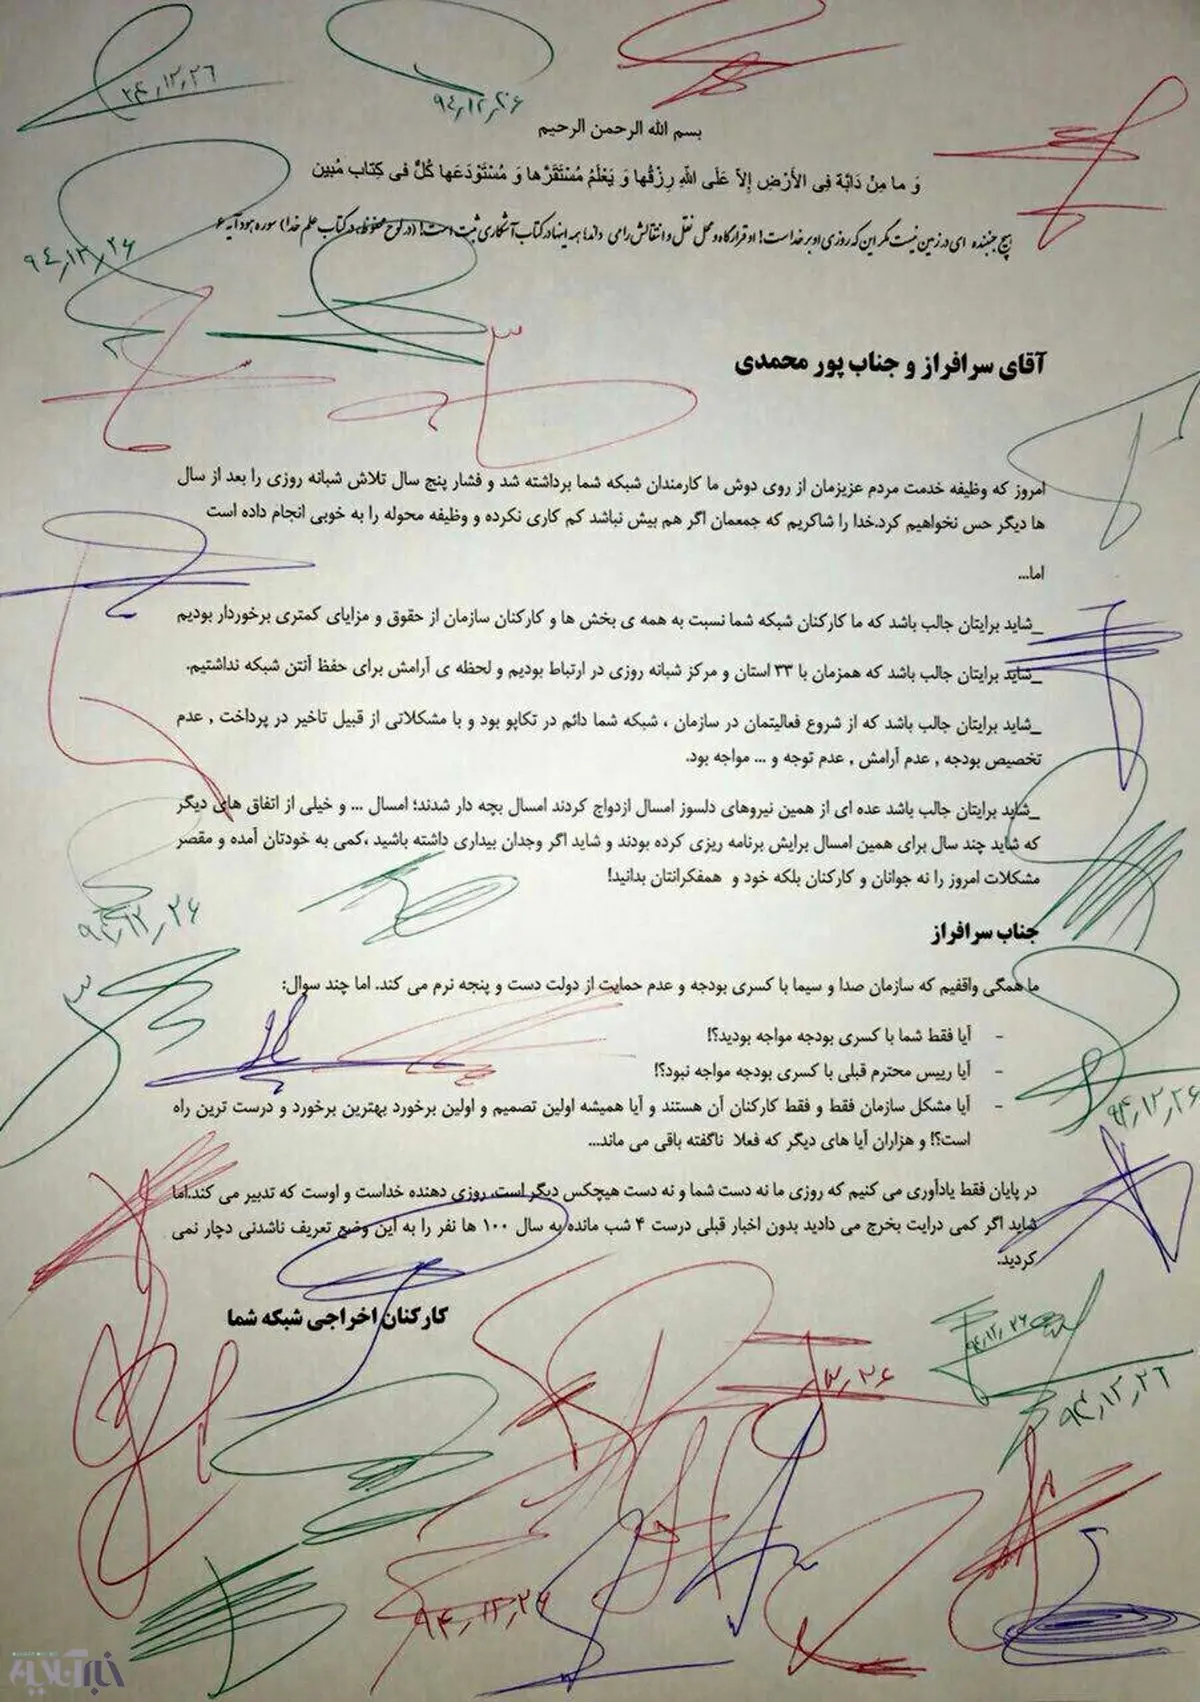 ۹۴,۱۲,۲۶
۹۴,۱۲,۲۶
بسم الله الرحمن الرحیم
وَ ما مِنْ دَابَّة فِی الأَرْضِ إِلاَّ عَلَى اللّهِ رِزْقُها وَ یَعْلَمُ مُسْتَقَرَّها وَ مُسْتَوْدَعَها کُلٌّ فی کِتاب مُبین
هیچ جنبنده ای در زمین نیست مگر این که روزی او بر خداست! او قرارگاه و محل نقل و انتقالش را می داند؛ همه اینها در کتاب آشکاری ثبت است! (در لوح محفوظ، در کتاب علم خدا) سوره هود آیه ۶
۹۴,۱۲,۲۶
آقای سرافراز و جناب پور محمدی
امروز که وظیفه خدمت مردم عزیزمان از روی دوش ما کارمندان شبکه شما برداشته شد و فشار پنج سال تلاش شبانه روزی را بعد از سال
ها دیگر حس نخواهیم کرد.خدا را شاکریم که جمعمان اگر هم بیش نباشد کم کاری نکرده و وظیفه محوله را به خوبی انجام داده است
اما...
_شاید برایتان جالب باشد که ما کارکنان شبکه شما نسبت به همه ی بخش ها و کارکنان سازمان از حقوق و مزایای کمتری برخوردار بودیم
_شاید برایتان جالب باشد که همزمان با ۳۳ استان و مرکز شبانه روزی در ارتباط بودیم و لحظه ی آرامش برای حفظ آنتن شبکه نداشتیم.
_شاید برایتان جالب باشد که از شروع فعالیتمان در سازمان ، شبکه شما دائم در تکاپو بود و با مشکلاتی از قبیل تاخیر در پرداخت , عدم
تخصیص بودجه , عدم آرامش , عدم توجه و ... مواجه بود.
_شاید برایتان جالب باشد عده ای از همین نیروهای دلسوز امسال ازدواج کردند امسال بچه دار شدند؛ امسال ... و خیلی از اتفاق های دیگر
که شاید چند سال برای همین امسال برایش برنامه ریزی کرده بودند و شاید اگر وجدان بیداری داشته باشید ،کمی به خودتان آمده و مقصر
مشکلات امروز را نه جوانان و کارکنان بلکه خود و همفکرانتان بدانید!
۹۴,۱۲,۲۶
جناب سرافراز
ما همگی واقفیم که سازمان صدا و سیما با کسری بودجه و عدم حمایت از دولت دست و پنجه نرم می کند. اما چند سوال:
- آیا فقط شما با کسری بودجه مواجه بودید؟!
- آیا رییس محترم قبلی با کسری بودجه مواجه نبود؟!
- آیا مشکل سازمان فقط و فقط کارکنان آن هستند و آیا همیشه اولین تصمیم و اولین برخورد بهترین برخورد و درست ترین راه
است؟! و هزاران آیا های دیگر که فعلا ناگفته باقی می ماند...
۹۴,۱۲,۲۶
در پایان فقط یادآوری می کنیم که روزی ما نه دست شما و نه دست هیچکس دیگر است. روزی دهنده خداست و اوست که تدبیر می کند.اما
شاید اگر کمی درایت بخرج می دادید بدون اخبار قبلی درست ۴ شب مانده به سال ۱۰۰ ها نفر را به این وضع تعریف ناشدنی دچار نمی
کردید.
کارکنان اخراجی شبکه شما
۹۴,۱۲,۲۶
۱۲,۲۶
۹۴,۱۲,۲۶
۹۴,۱۲,۲۶
خبرآنلاین